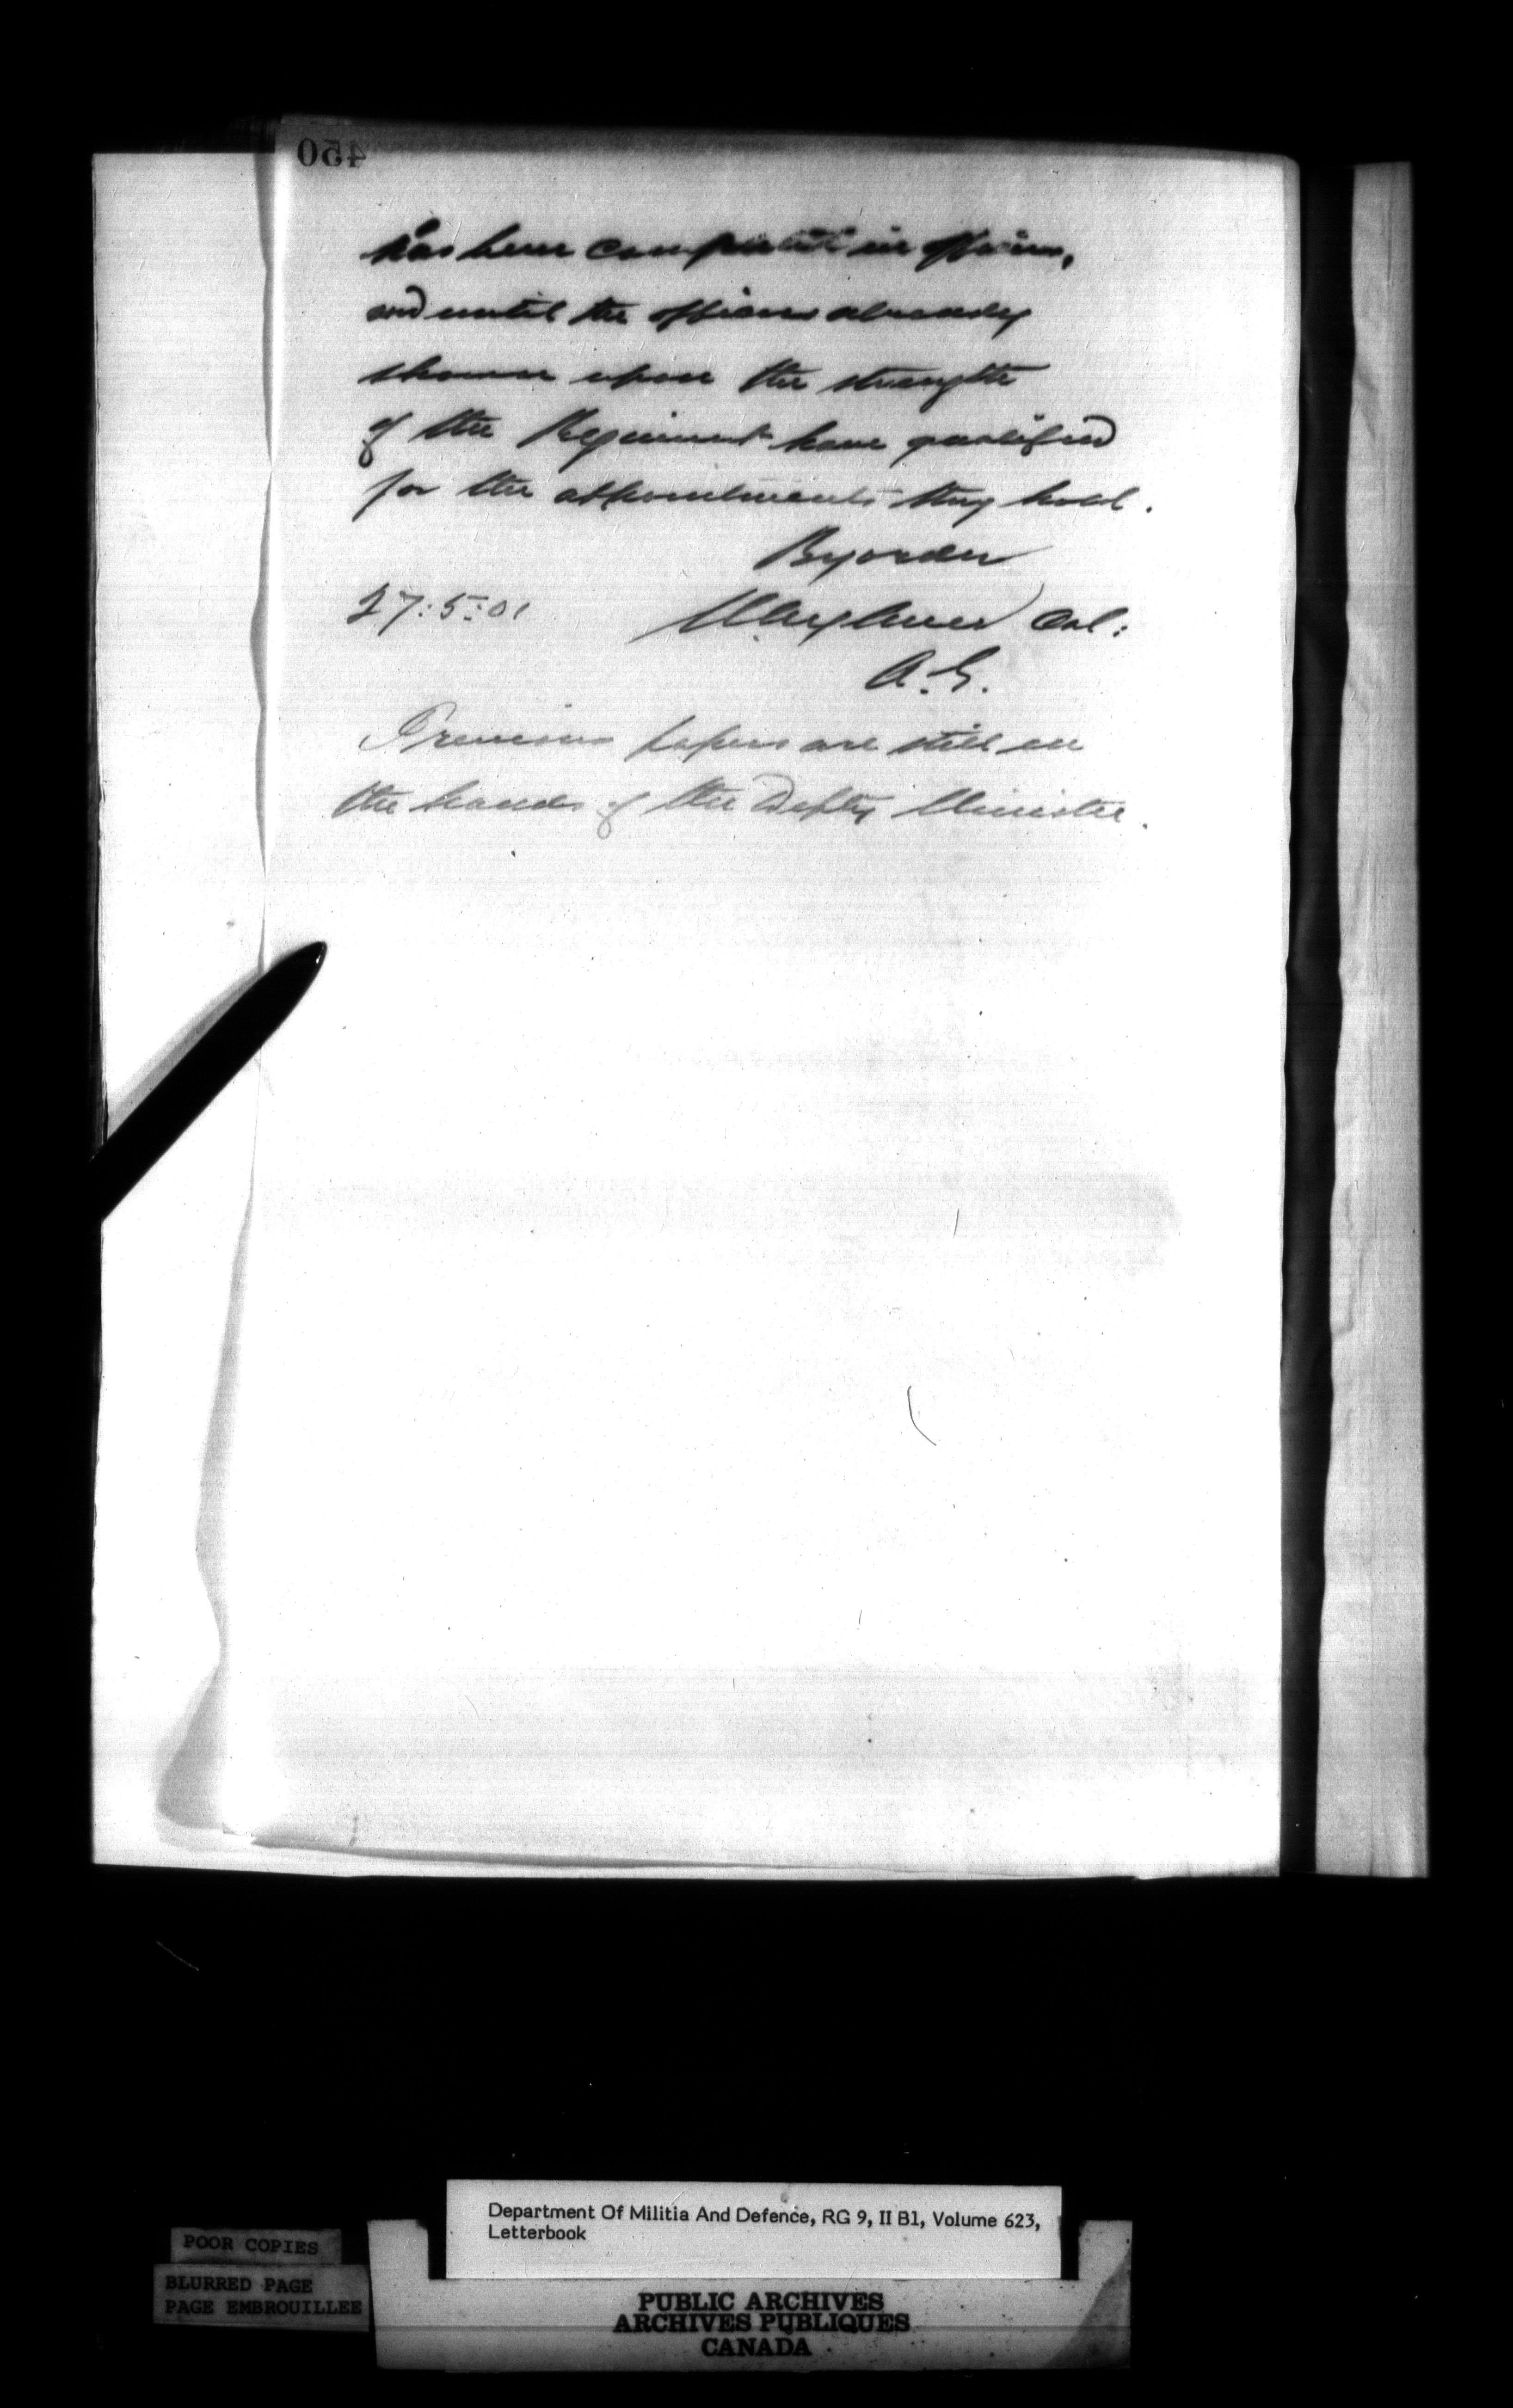 450
has been completed in officers,
and until the officers already
shown upon the strength
of the Regiment have qualified
for the appointments they hold.
By order
27:5:01 Col:
A.G.
Previous papers are still in
the hands of the Depty Minister.
Department Of Militia And Defence, RG 9, II B1, Volume 623,
Letterbook
POOR COPIES
BLURRED PAGE
PAGE EMBROUILLEE
PUBLIC ARCHIVES
ARCHIVES PUBLIQUES
CANADA